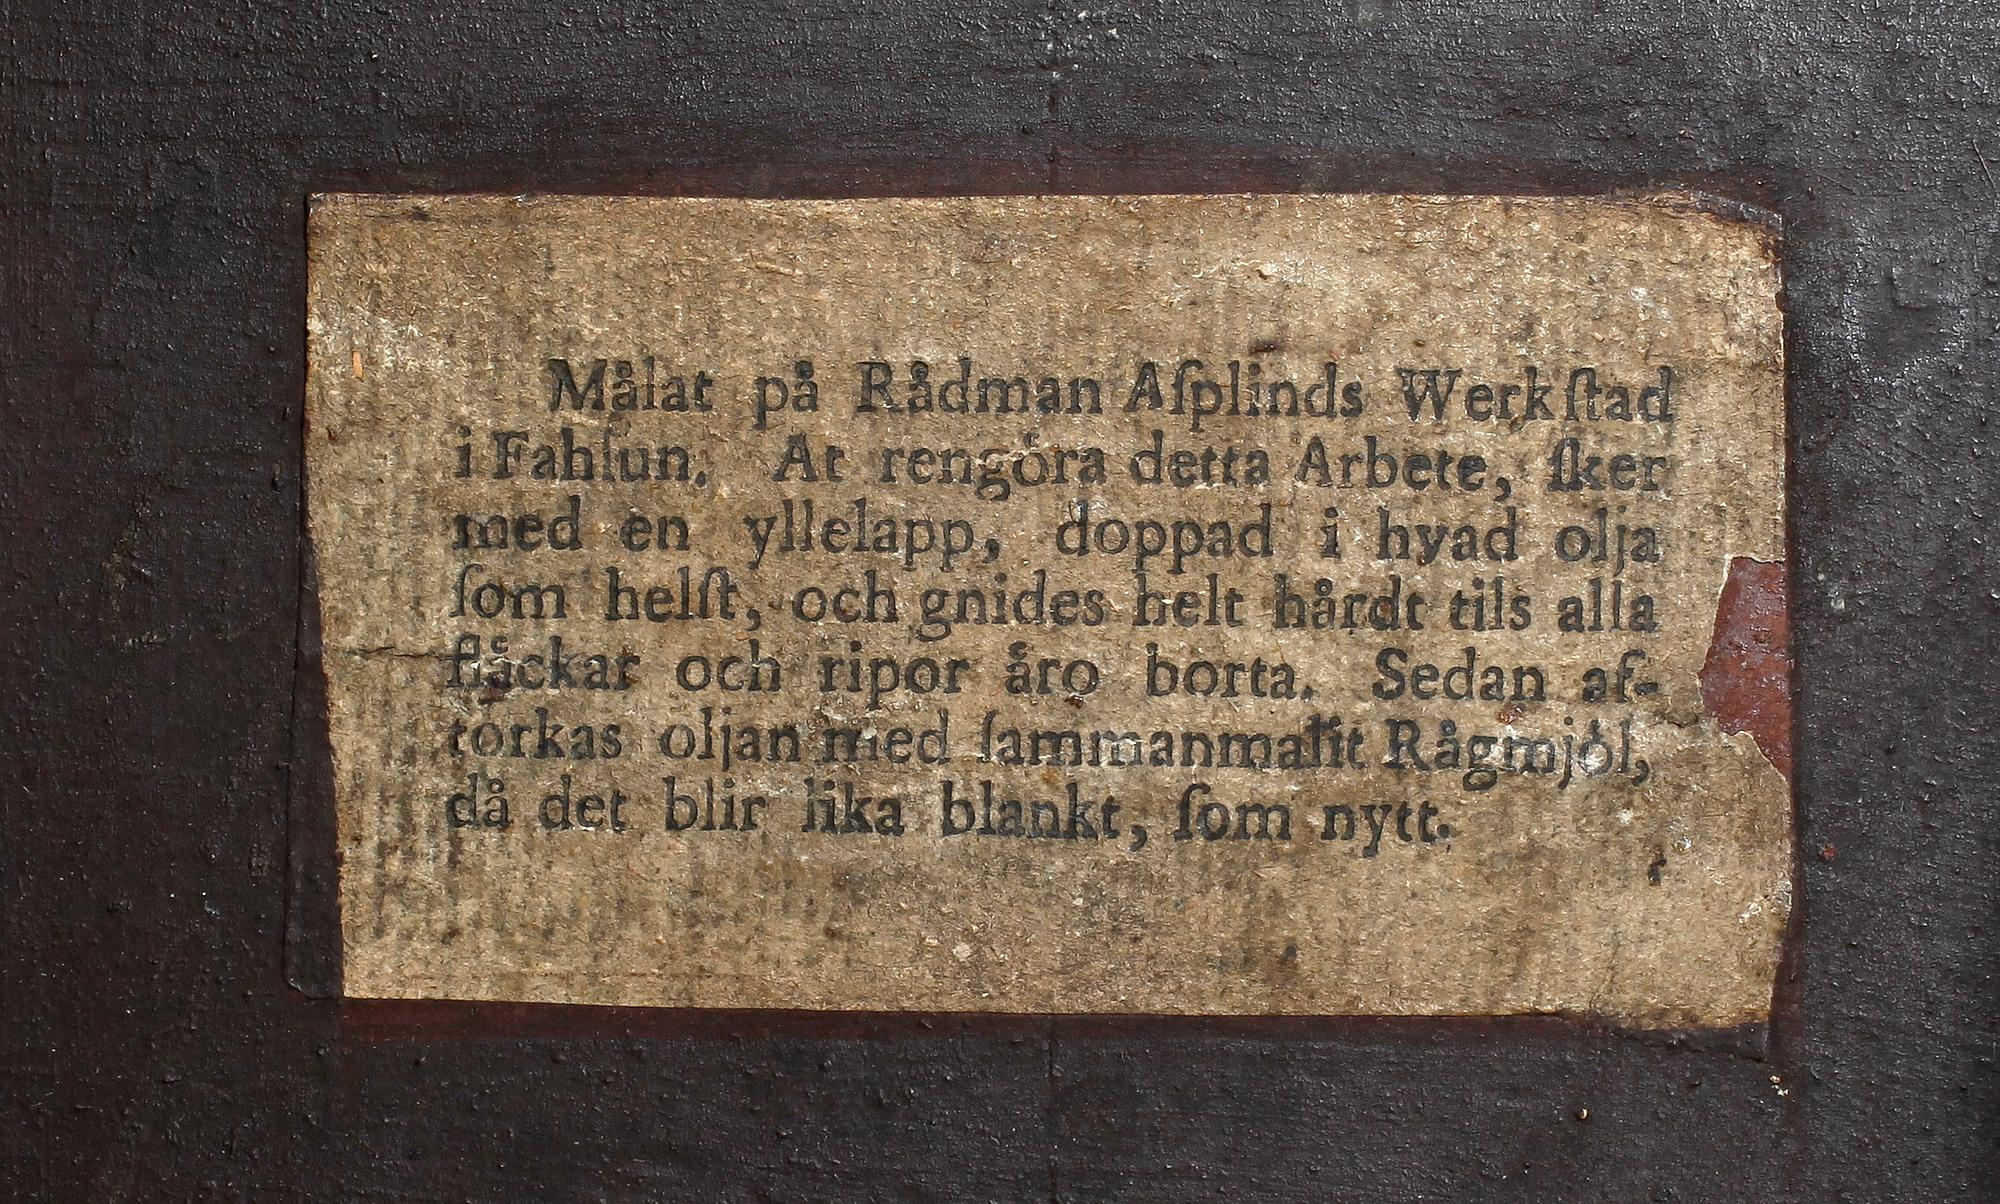 Målat på Rådman Aſplinds Werkſtad
i Fahlun. At rengöra detta Arbete, ſker
med en yllelapp, doppad i hvad olja
ſom helſt, och gnides helt hårdt tils alla
fläckar och ripor äro borta. Sedan af-
torkas oljan med ſammanmalit Rågmjöl,
då det blir lika blankt, ſom nytt.